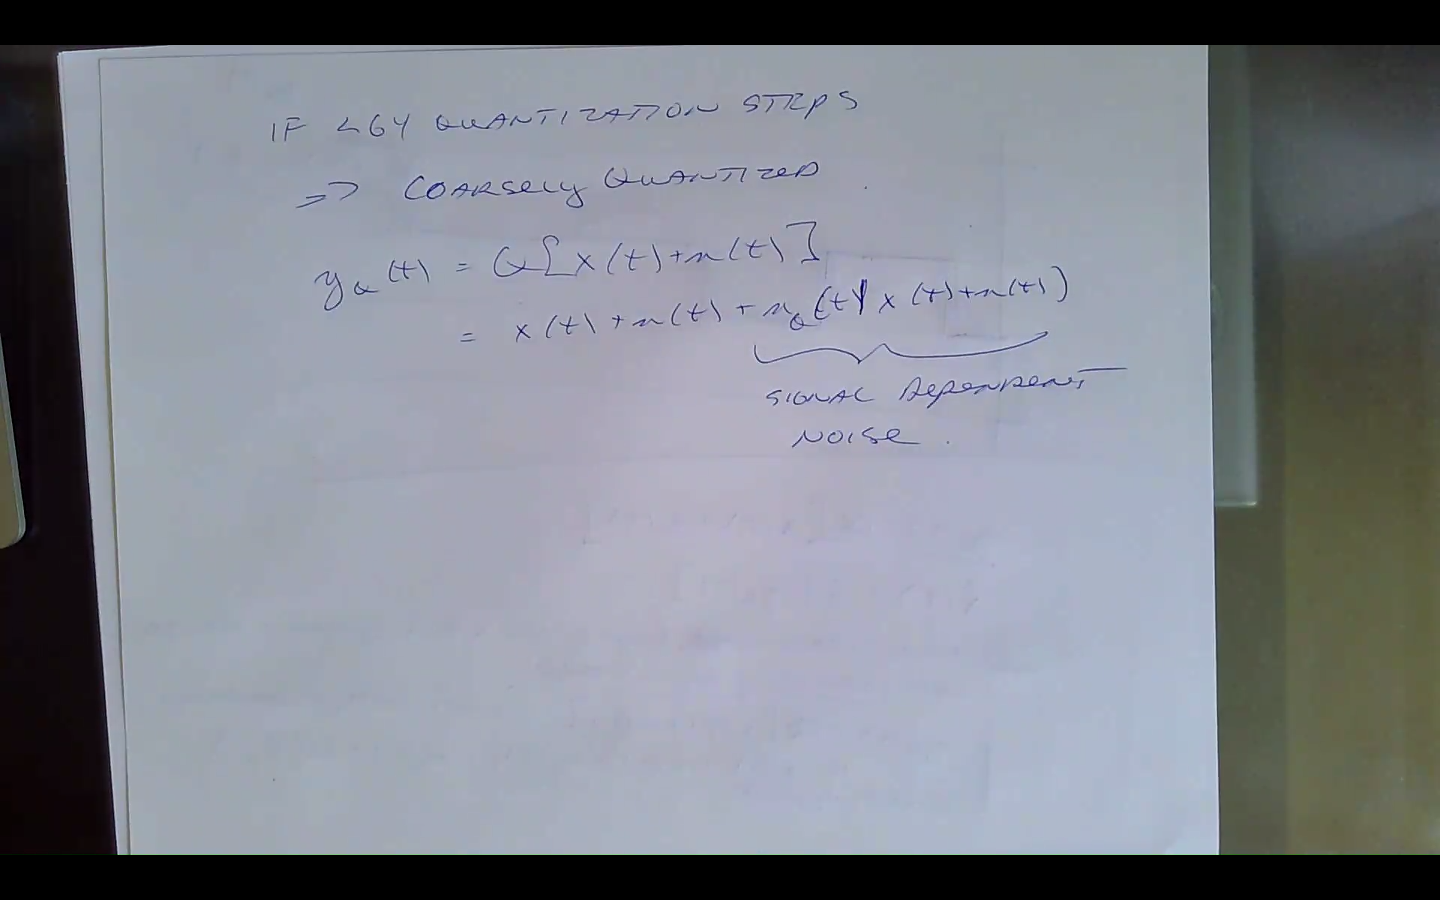 IF < 64 QUANTIZATION STEPS
=> COARSELY QUANTIZED
y_Q(t) = Q[x(t)+n(t)]
= x(t)+n(t) + n_Q(t| x(t)+n(t))
SIGNAL DEPENDENT
NOISE.